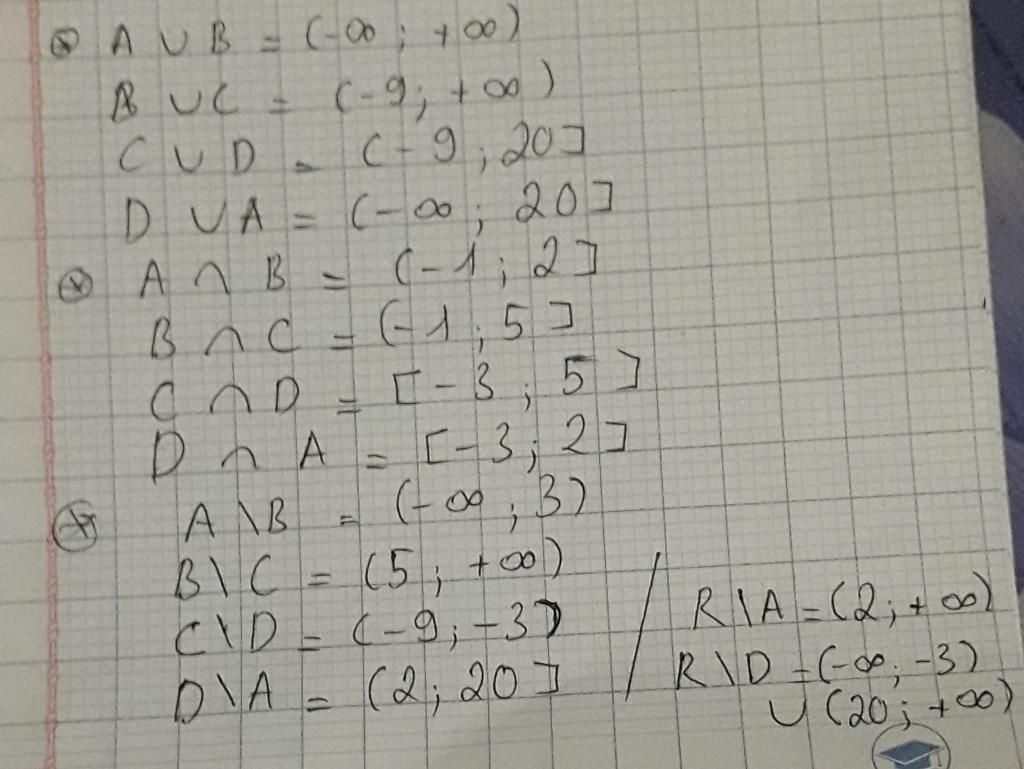 A ∪ B = (-∞ ; +∞)
B ∪ C = (-9 ; +∞)
C ∪ D = (-9 ; 20]
D ∪ A = (-∞ ; 20]
A ∩ B = (-1 ; 2]
B ∩ C = (-1 ; 5]
C ∩ D = [-3 ; 5]
D ∩ A = [-3 ; 2]
A \ B = (-∞ ; 3)
B \ C = (5 ; +∞)
C \ D = (-9 ; -3)
D \ A = (2 ; 20]
R \ A = (2 ; +∞)
R \ D = (-∞ ; -3)
∪ (20 ; +∞)